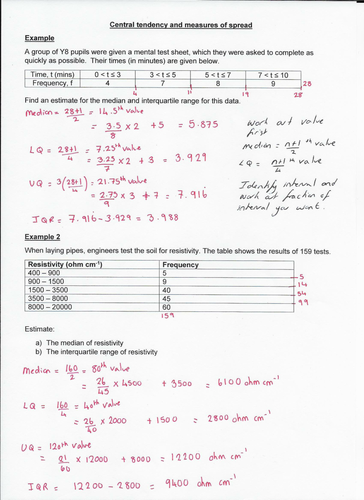 Central tendency and measures of spread
Example
A group of Y8 pupils were given a mental test sheet, which they were asked to complete as
quickly as possible. Their times (in minutes) are given below.
Time, t (mins) 0 < t ≤ 3 3 < t ≤ 5 5 < t ≤ 7 7 < t ≤ 10
Frequency, f 4 7 8 9 28
4 11 19 28
Find an estimate for the median and interquartile range for this data.
Median = 28+1/2 = 14.5th value
= 3.5/8 x 2 + 5 = 5.875
LQ = 28+1/4 = 7.25th value
= 3.25/7 x 2 + 3 = 3.929
UQ = 3(28+1)/4 = 21.75th value
= 2.75/9 x 3 + 7 = 7.916̇
IQR = 7.916̇ - 3.929 = 3.988
Work out value
first
Median = n+1/2 th value
LQ = n+1/4 th value
Identify interval and
work out fraction of
interval you want.
Example 2
When laying pipes, engineers test the soil for resistivity. The table shows the results of 159 tests.
Resistivity (ohm cm⁻¹) Frequency
400 – 900 5 5
900 – 1500 9 14
1500 – 3500 40 54
3500 – 8000 45 99
8000 – 20000 60
159
Estimate:
a) The median of resistivity
b) The interquartile range of resistivity
Median = 160/2 = 80th value
= 26/45 x 4500 + 3500 = 6100 ohm cm⁻¹
LQ = 160/4 = 40th value
= 26/40 x 2000 + 1500 = 2800 ohm cm⁻¹
UQ = 120th value
= 21/60 x 12000 + 8000 = 12200 ohm cm⁻¹
IQR = 12200 - 2800 = 9400 ohm cm⁻¹